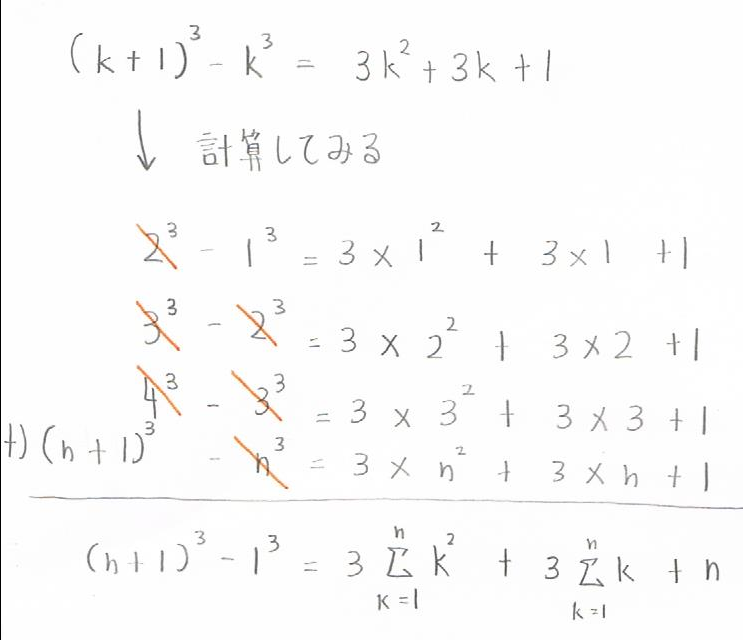 (k+1)³ - k³ = 3k² + 3k + 1
↓ 計算してみる
2³ - 1³ = 3 × 1² + 3 × 1 + 1
3³ - 2³ = 3 × 2² + 3 × 2 + 1
4³ - 3³ = 3 × 3² + 3 × 3 + 1
+) (n+1)³ - n³ = 3 × n² + 3 × n + 1
(n+1)³ - 1³ = 3 Σ[k=1→n] k² + 3 Σ[k=1→n] k + n